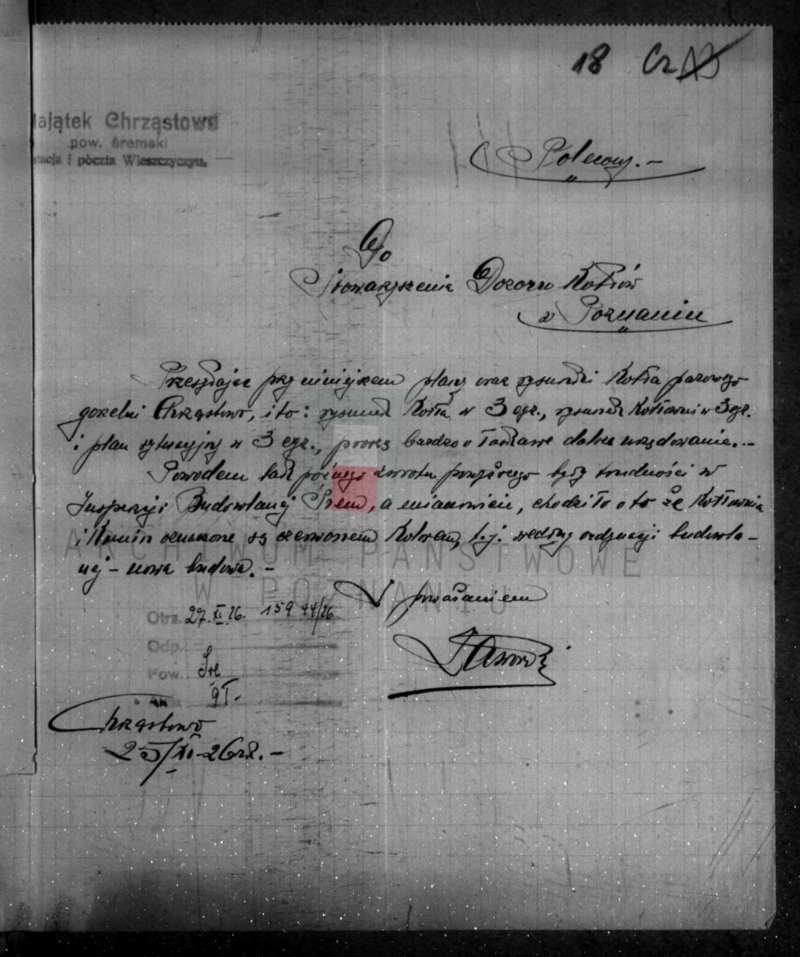 18 Cz
Majątek Chrząstowo
pow. śremski
stacja i poczta Wieszczyczyn.
Polecony.-
Do
Stowarzyszenia Dozoru Kotłów
w Poznaniu
Przesyłając przy niniejszem plany oraz rysunki Kotła parowego
gorzelni Chrząstowo, i to: rysunek Kotła w 3 egz., rysunek Kotłowni w 3 egz.
i plan sytuacyjny w 3 egz., proszę bardzo o łaskawe dalsze urzędowanie.-
Powodem tak późnego zwrotu powyższego były trudności w
Inspekcji Budowlanej Śrem, a mianowicie, chodziło o to że Kotłownia
i Komin oznaczone są czerwonem Kolorem, t.j. według ordynacji budowla-
nej - nowa budowa.-
ARCHIWUM PAŃSTWOWE
W POZNANIU
Z poważaniem
Otrz. 27.XI.26. 15944/26
Odp.
Pow. Śre
91-
Chrząstowo
25/XI-26r.-